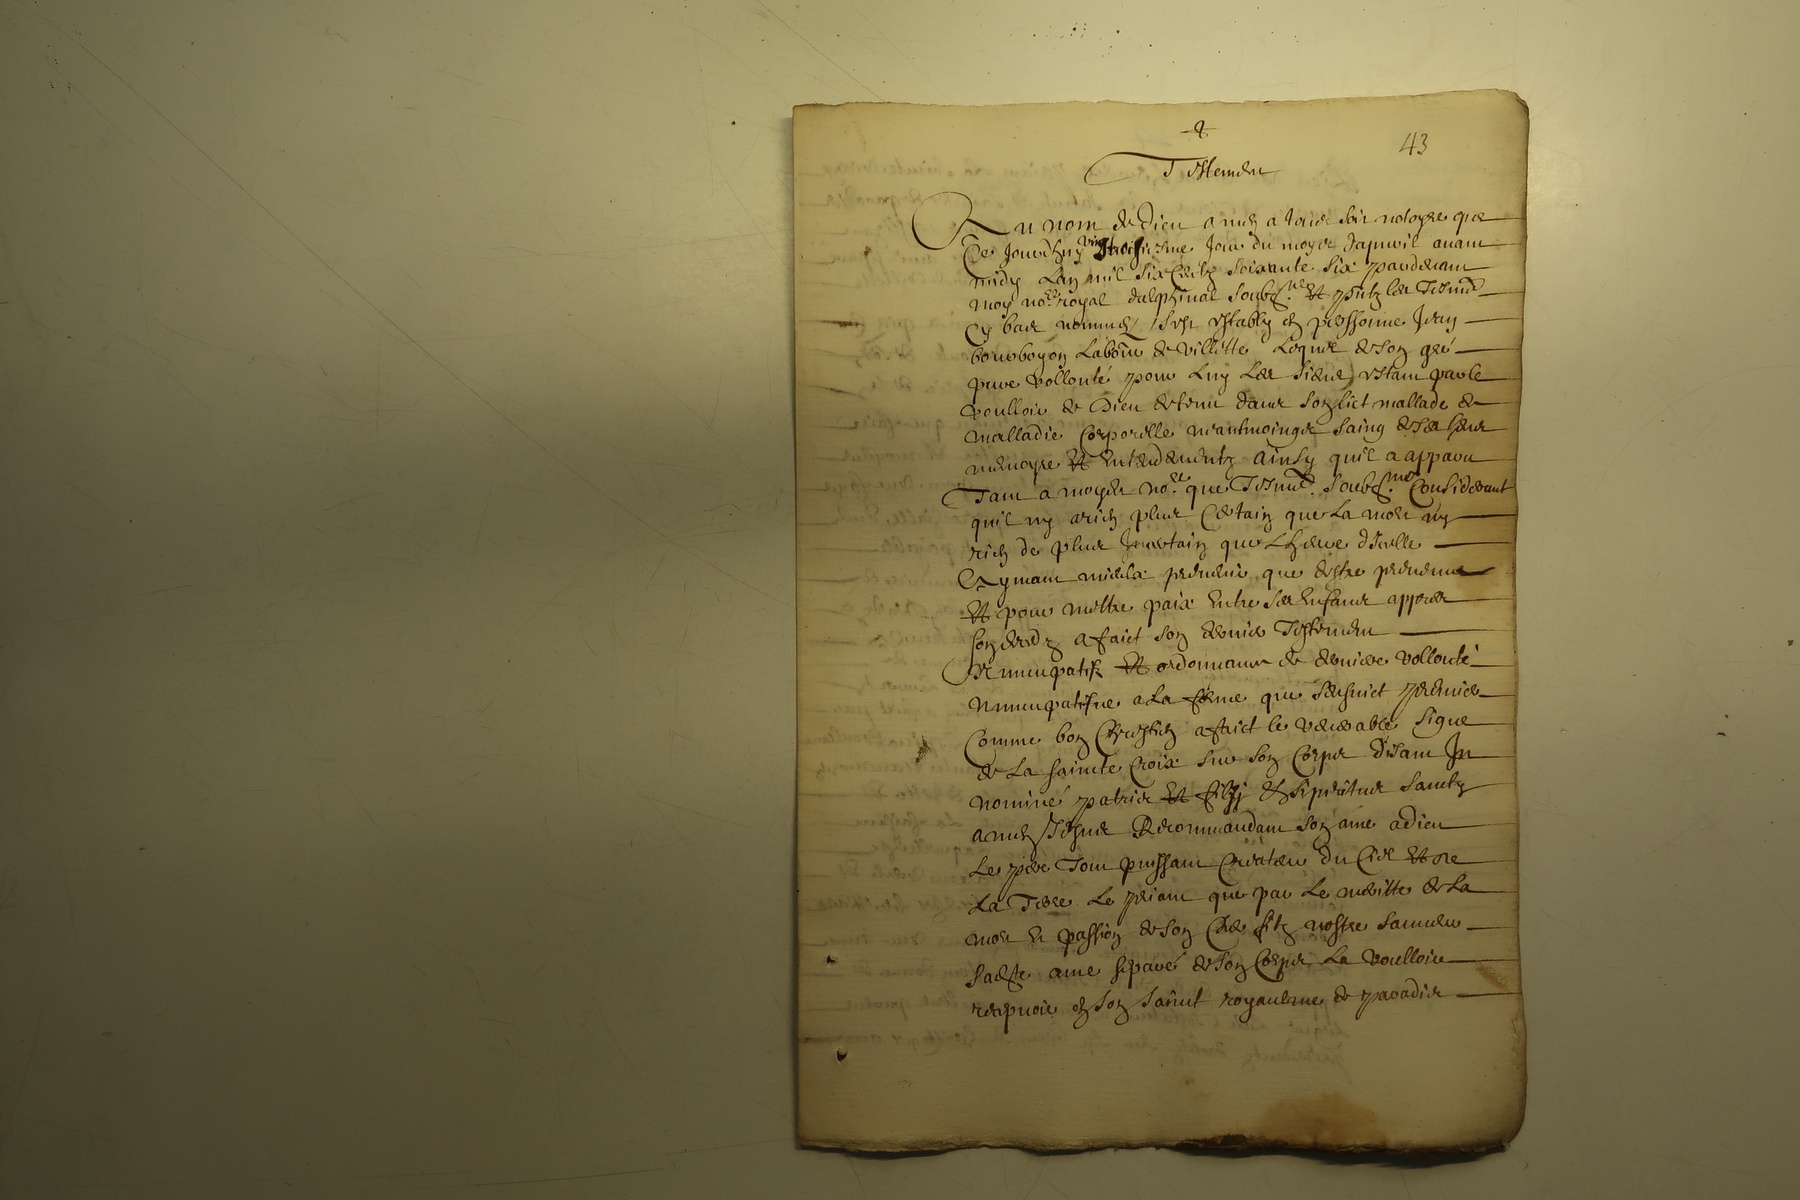 43
Testemen
Au nom de Dieu amen a tous soit notoyre que
Ce jourdhuy vingt troisiesme jour du moys dapvril avant
midy Lan mil six Centz soixante six pardevant
moy no.re royal dalphinal soubz.ne et p̃ntz les Tesmo.
Cy bas nommes sest estably en perssonne Jean
bourboyon Labour de Villette Lequel de son gré
pure vollonté pour Luy Les siens estant par le
voulloir de Dieu detenu dans son lict mallade de
malladie Corporelle neantmoinge saing de ses sens
memoyre et entendementz ainsy quil a apparu
Tant a moyd no.re que Tesmo. soubz.nes Considerant
quil ny a rien plus Certain que La mort ny
rien de plus Incertain que Lheure dIcelle
Aymant mieulx prevenir que destre prevenu
et pour mettre paix entre ses enfans appres
son decedz a faict son dernier Testemen
Nuncupatif et ordonnance de derniere vollonté
nuncupatifve a La forme que sensuict premier
Comme bon Chrestien a faict le venerable signe
de La sainte Croix sur son Corps disant In
nominé patris et filÿ et spiritus sancty
amen Jesus Recommandant son ame a Dieu
Le pere Tout puissant Createur du Ciel et de
La Terre Le priant que par Le meritte de La
mort et passion de son Cher filz nostre sauveur
sadte ame separé de son Corps La voulloir
recepvoir en son saint royaulme de paradis